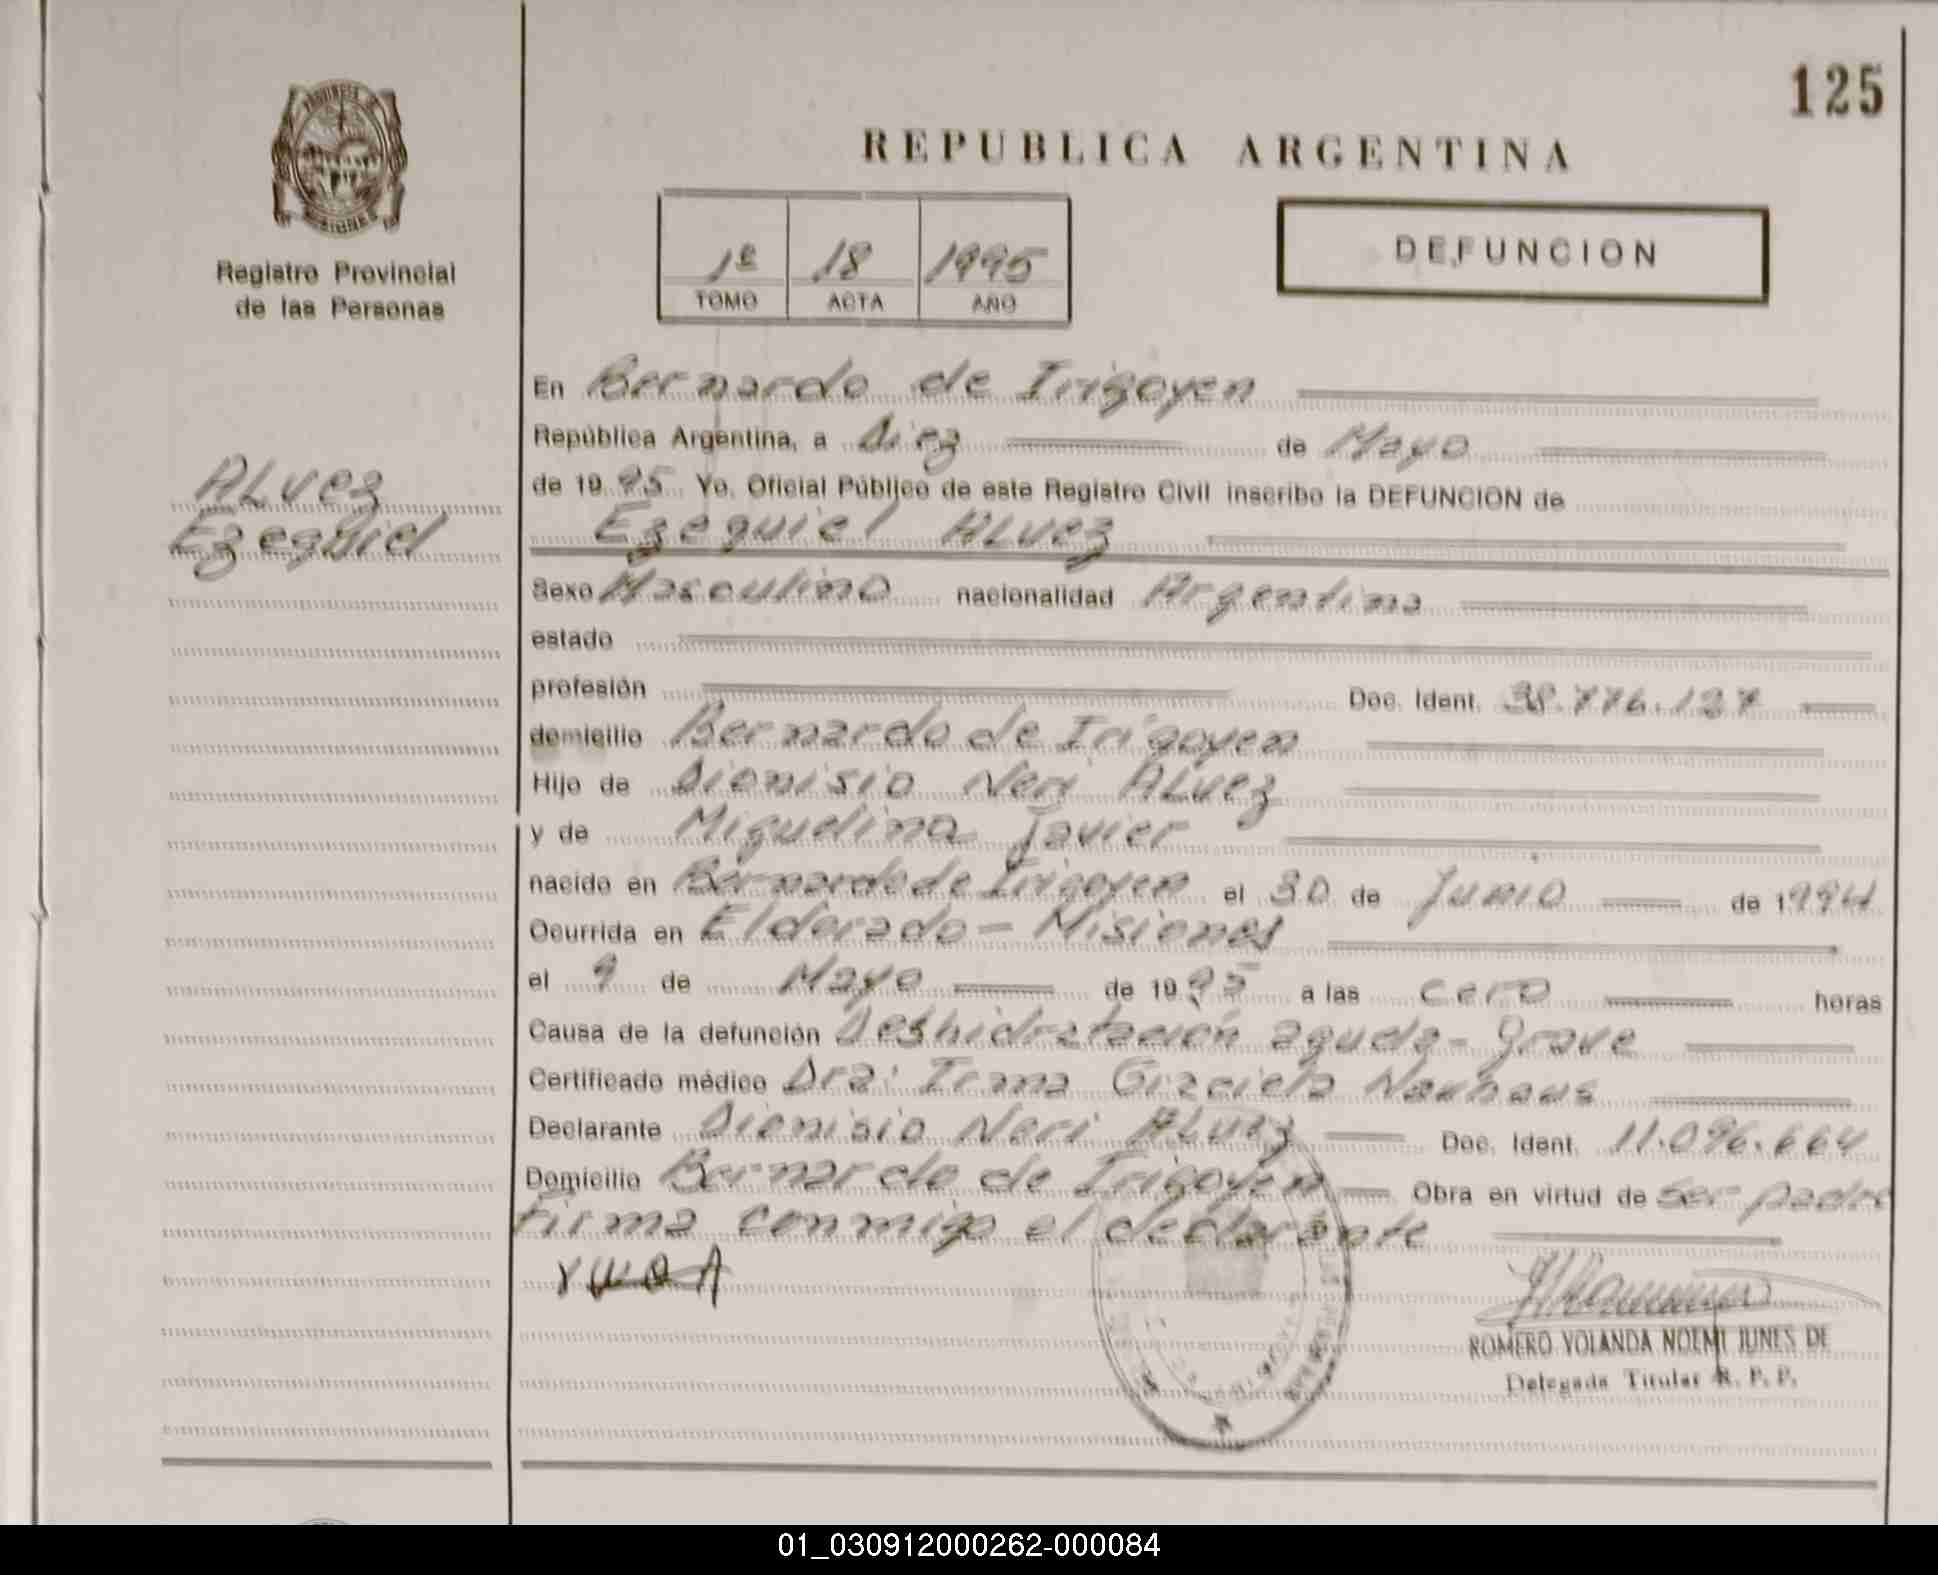 125
PROVINCIA DE
MISIONES
REPUBLICA ARGENTINA
Registro Provincial
de las Personas
1º 18 1995
TOMO ACTA AÑO
DEFUNCION
ALvez
Ezequiel
En Bernardo de Irigoyen
República Argentina, a Diez de Mayo
de 1995 Yo, Oficial Público de este Registro Civil inscribo la DEFUNCION de
Ezequiel ALvez
Sexo Masculino nacionalidad Argentina
estado
profesión Doc. Ident. 38.776.127
domicilio Bernardo de Irigoyen
Hijo de Dionisio Neri ALvez
y de Miguelina Javier
nacido en Bernardo de Irigoyen el 30 de Junio de 1994
Ocurrida en Eldorado - Misiones
el 9 de Mayo de 1995 a las cero horas
Causa de la defunción Deshidratación aguda - grave
Certificado médico Dra: Irma Graciela
Declarante Dionisio Neri ALvez Doc. Ident. 11.096.664
Domicilio Bernardo de Irigoyen Obra en virtud de ser padre
Firma conmigo el declarante
ROMERO YOLANDA NOEMI JUNES DE
Delegada Titular R. P. P.
01_030912000262-000084